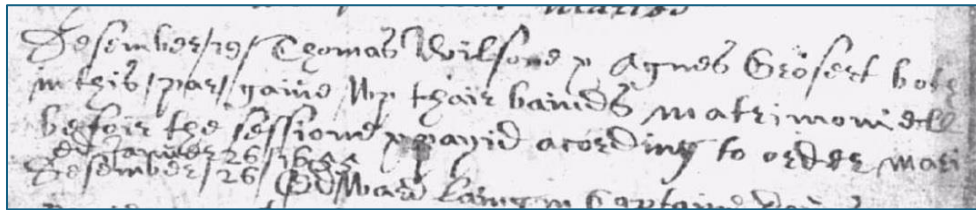 Desember/29/ Thomas Wilsone & Agnes Grosert both
in this/par/gaive Wp thair bainds matrimoniell
befoir the sessione & payid acording to order mari
ed Januer 26 1655
Desember/26/ Edward Laing in Captaine